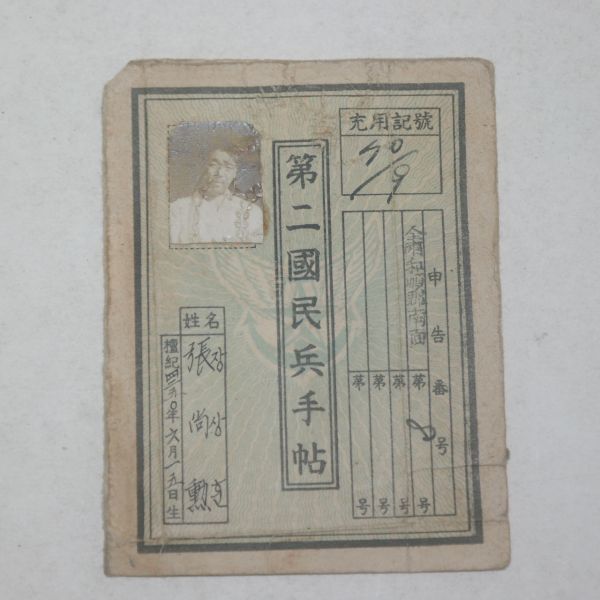 充用記號
申告番号
全南和順郡南面
第 8 号
第 号
第 号
第 号
第二國民兵手帖
姓名
張장
尚상
勳훈
檀紀四二五〇年六月一五日生